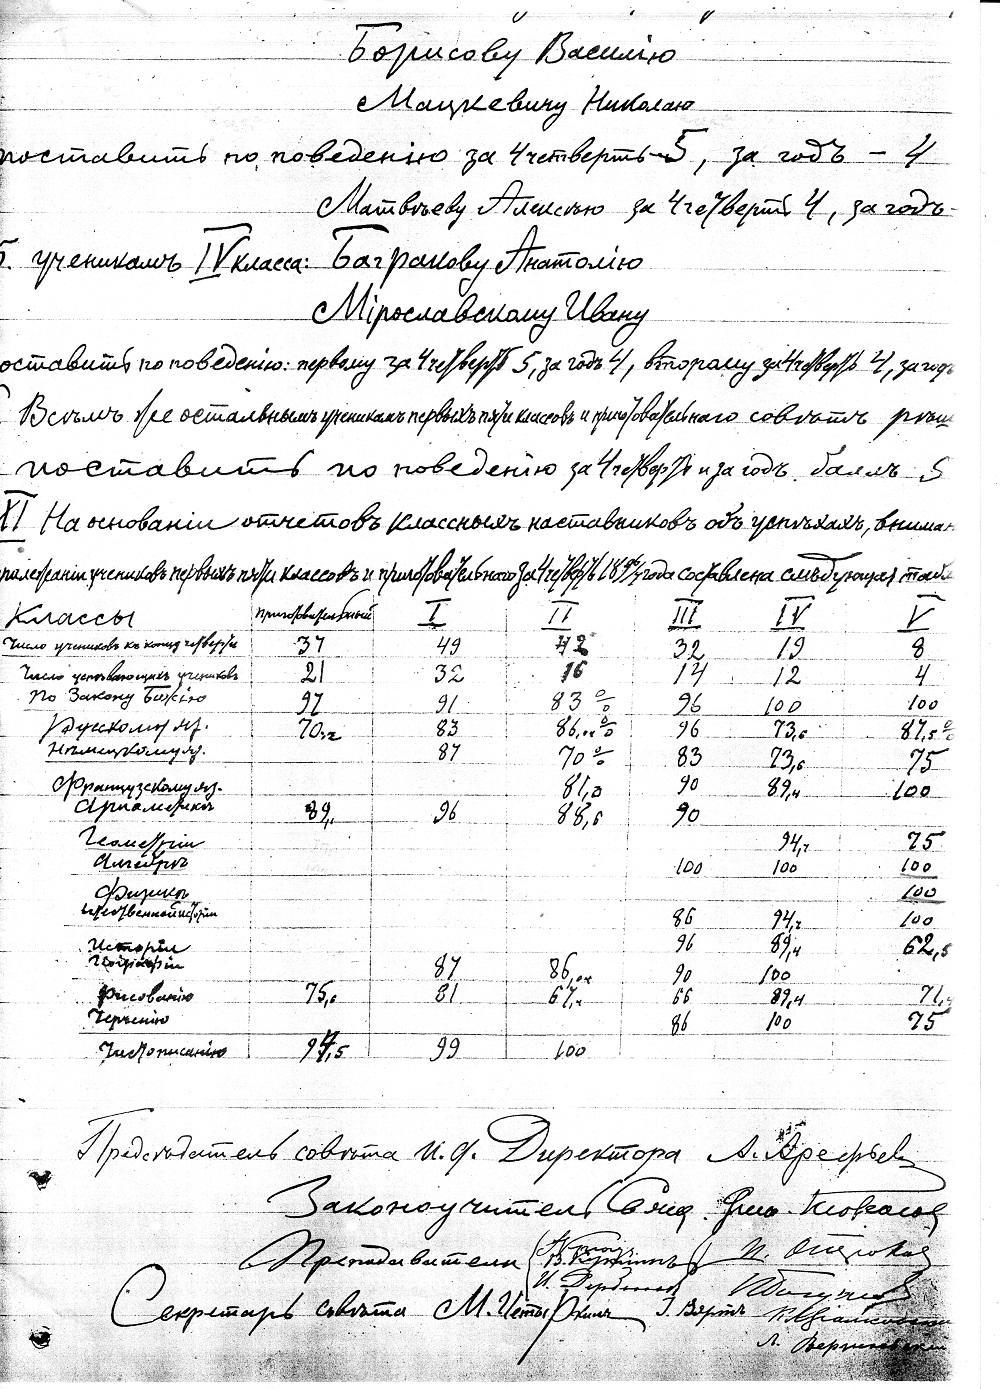 Борисову Василію
Мацкевичу Николаю
поставить по поведенію за 4 четверть 5, за годъ – 4
Матвѣеву Алексѣю за 4 четверть 4, за годъ –
5. ученикамъ IV класса: Багракову Анатолію
Мірославскому Ивану
оставить по поведенію: первому за 4 четверть 5, за годъ 4, второму за 4 четверть 4, за годъ
Всѣмъ же остальнымъ ученикамъ первыхъ пяти классовъ и приготовительнаго совѣтъ рѣши
поставить по поведенію за 4 четверть и за годъ баллъ 5
XI На основаніи отчетовъ классныхъ наставниковъ объ успѣхахъ, вниман
прилежаніи учениковъ первыхъ пяти классовъ и приготовительнаго за 4 четверть года составлена слѣдующая табл
Классы приготовительный I II III IV V
Число учениковъ къ концу четверти 37 49 42 32 19 8
Число успѣвающихъ учениковъ 21 32 16 14 12 4
По Закону Божію 97 91 83% 96 100 100
Русскому яз. 70,2 83 86,04% 96 73,6 87,5%
Нѣмецкому яз. 87 70% 83 73,6 75
Французскому яз. 81,0 90 89,4 100
Ариѳметикѣ 89, 96 88,6 90
Геометріи 94,7 75
Алгебрѣ 100 100 100
Физикѣ 100
Естественной исторіи 86 94,7 100
Исторіи 96 89,4 62,5
Географіи 87 86,04 90 100
Рисованію 75,6 81 67,4 66 89,4 71,4
Черченію 86 100 75
Чистописанію 97,5 99 100
Предсѣдатель совѣта И. д. Директора А. Арефьевъ
Законоучитель Свящ.
Преподаватели
Секретарь совѣта М. Четыркинъ